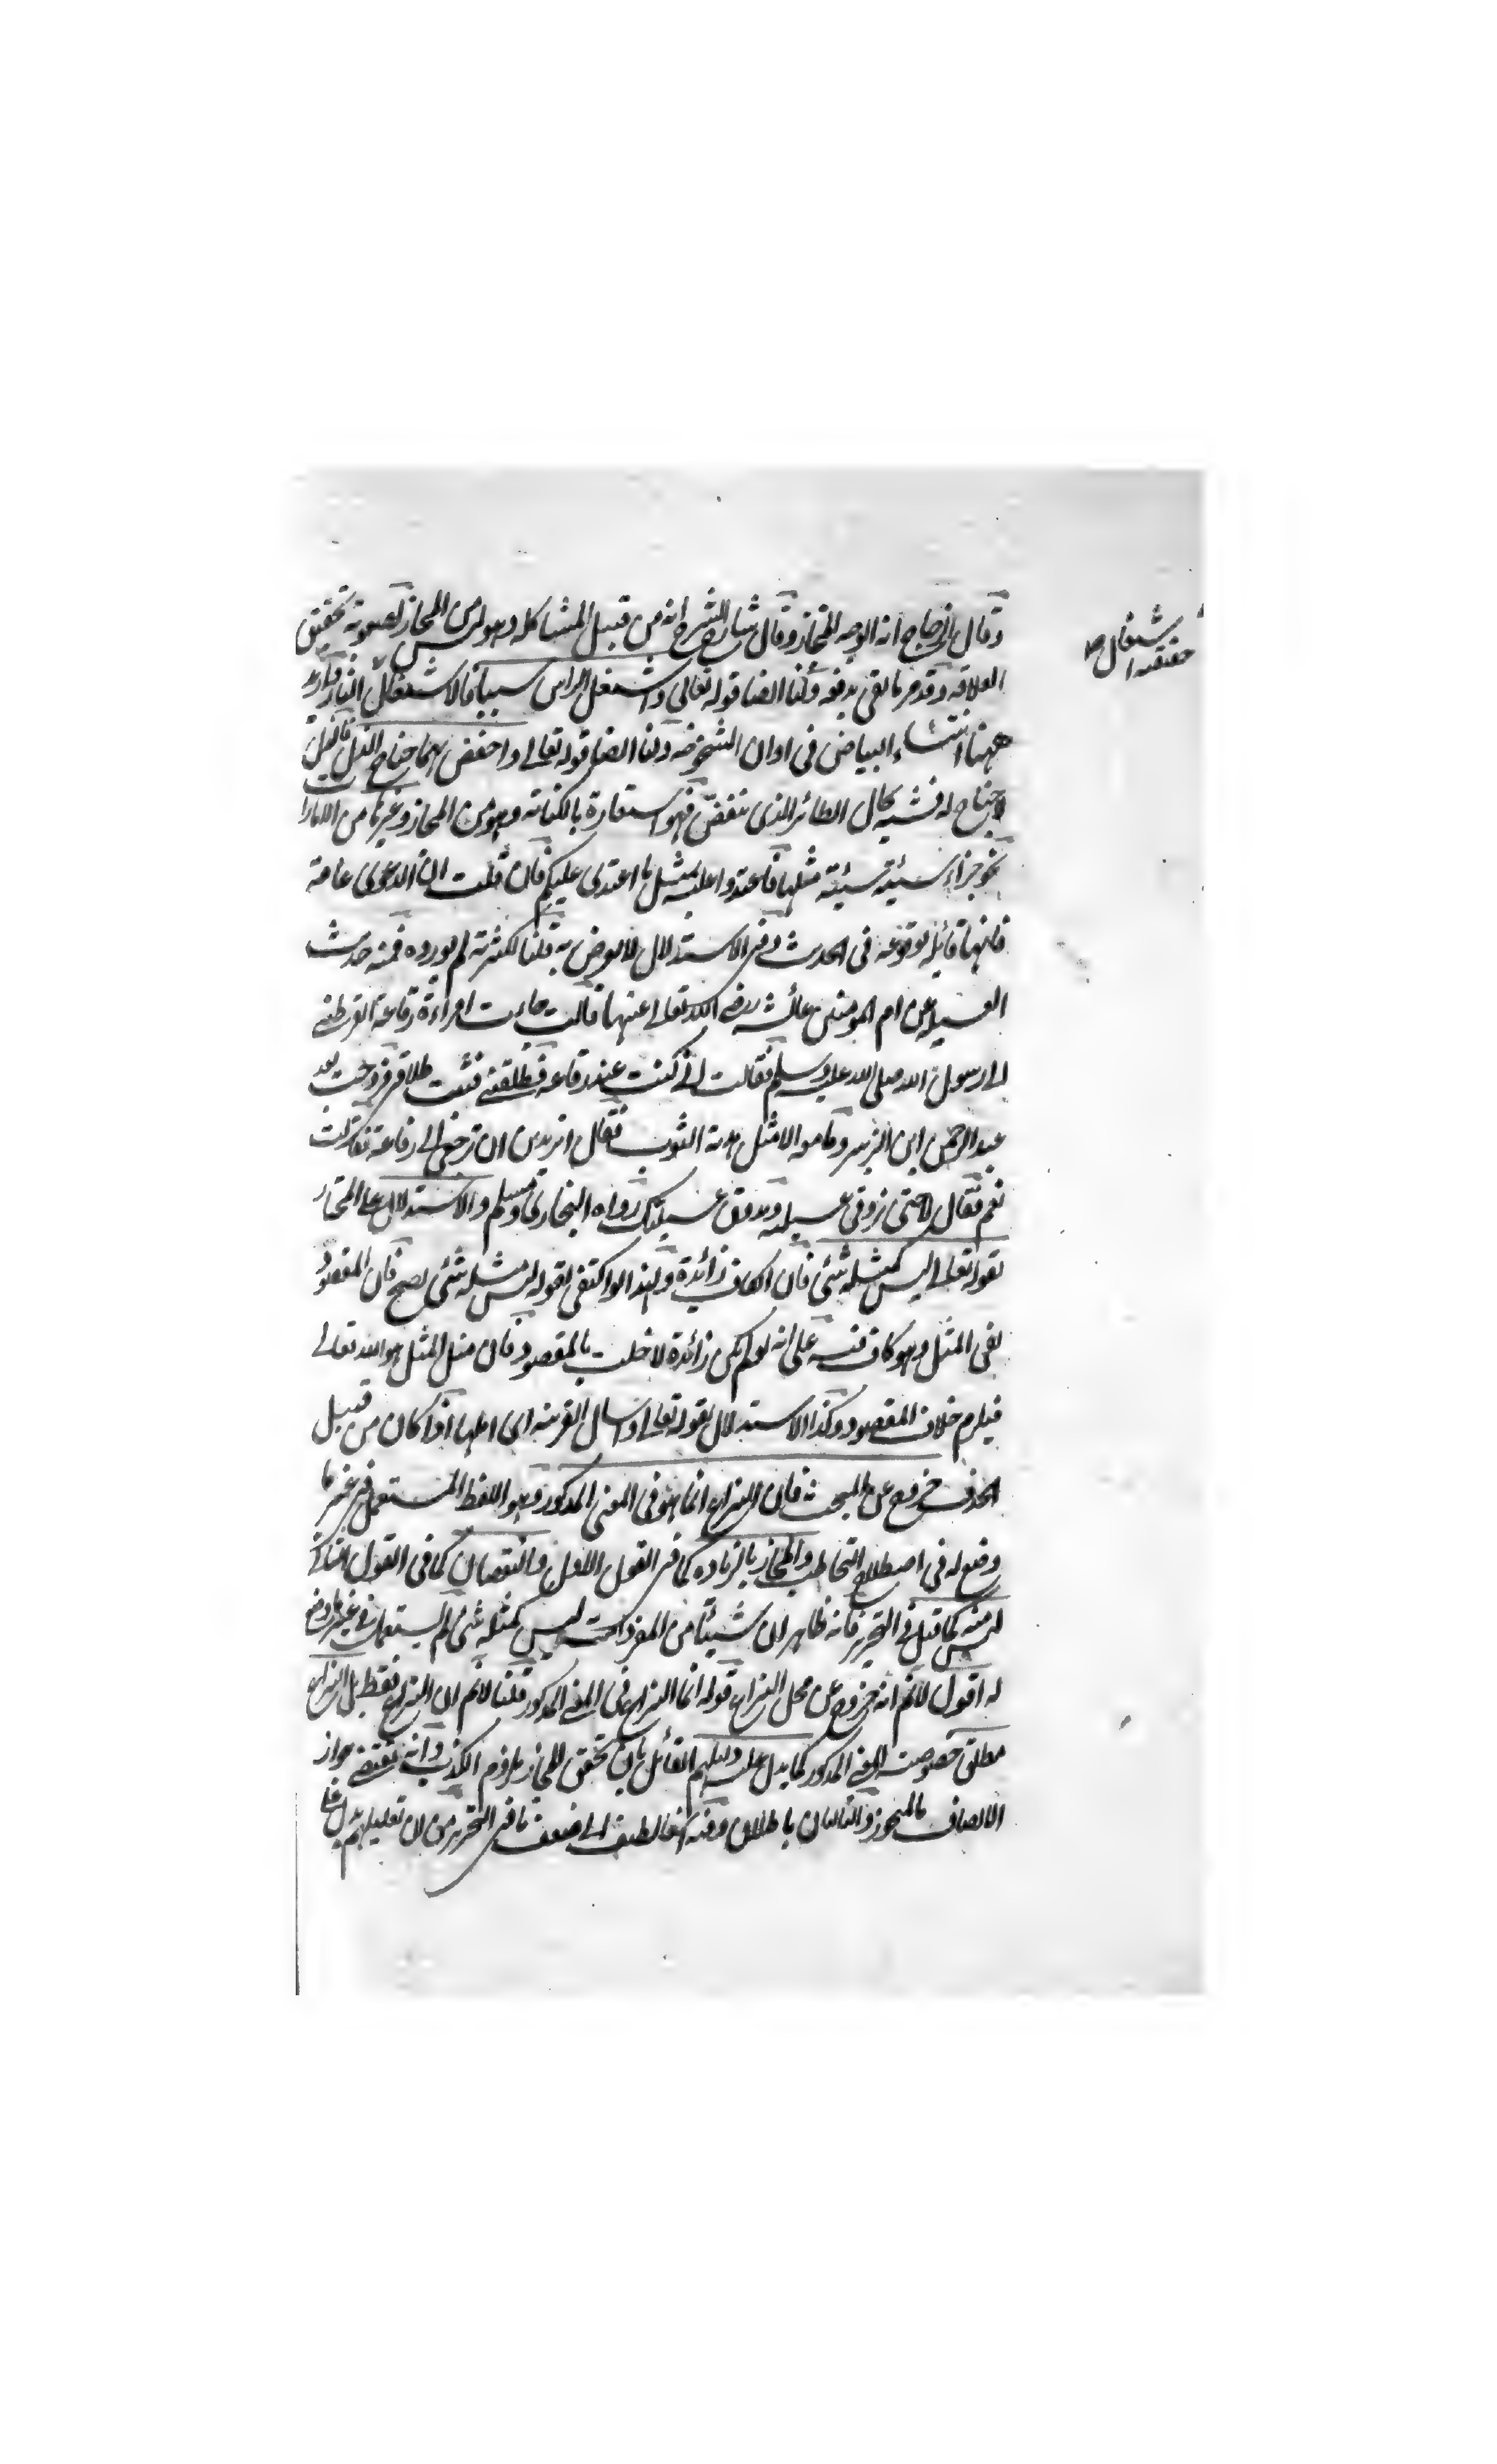 وقال الزجاج انه الوجه المختار وقال شارح الشرح انه من قبيل المشاكلة وهو ليس من المجاز لصعوبة تحقيق
العلاقة وقد مر ما بقى بدفعه ولنا ايضا قوله تعالى واشتعل الراس شيبا فالاشتعال للنار واريد
ههنا انتشاء البياض فى اوان الشيخوخة ولنا ايضا قوله تعالى واخفض لهما جناح الذل فالذل
لا جناح له فشبه بحال الطائر الذى فهو استعارة بالكناية وهو من المجاز وغيرها من الامارات
نحو جزاء سيئة سيئة مثلها فاعتدوا عليه بمثل ما اعتدى عليكم فان قلت ان الدعوى عامة
فانها قائلة بوقوعه فى الحديث وفى الاستدلال لا به قلنا لكثرته لم يورده فمنه حديث
العسيلة عن ام المومنين عائشة رضى الله تعالى عنها قالت جاءت امراءة رفاعة القرظى
الى رسول الله صلى الله عليه وسلم فقالت انى كنت عند رفاعة فطلقنى فبت طلاقى فزوجت بعد
عبد الرحمن ابن الزبير وما معه الا مثل هدبة الثوب فقال اتريدين ان ترجعى الى رفاعة فقالت
نعم فقال لا حتى تذوقى عسيلته ويذوق عسيلتك رواه البخارى ومسلم والاستدلال على المختار
بقوله تعالى ليس كمثله شئ فان الكاف زائدة ولهذا لو اكتفى بقوله ليس مثله شئ لصح فان المقصود
نفى المثل وهو كاف فيه على انه لو لم يكن زائدة لاخلت بالمقصود فان مثل المثل هو الله تعالى
فيلزم خلاف المقصود وكذا الاستدلال بقوله تعالى واسال القرية اى اهلها اذا كان من قبيل
الحذف خروج عن المبحث فان النزاع انما هو فى المعنى المذكور وهو اللفظ المستعمل فى غير ما
وضع له فى اصطلاح التخاطب والمجاز بالزيادة كما فى القول الاول والنقصان كما فى القول الثانى
ليس منه كما قيل فى التحرير فانه ظاهر ان شيئا من المفردات ليس كمثله شئ لم يستعمل فى غير ما وضع
له اقول لا نم انه خروج عن محل النزاع قوله انما النزاع فى المعنى المذكور قلنا لا نم ان النزاع فقط بل النزاع
مطلق خصوصية المعنى المذكور كما يدل عليه دليلهم القائل بان تحقق المجاز يلزم الكذب وانه يقتضى جواز
الاتصاف بالمتجوز والتاليان باطلان وفيه الى ضعف ما فى التحرير من ان تعليلهم يدل على
اشتعال
حقيقة